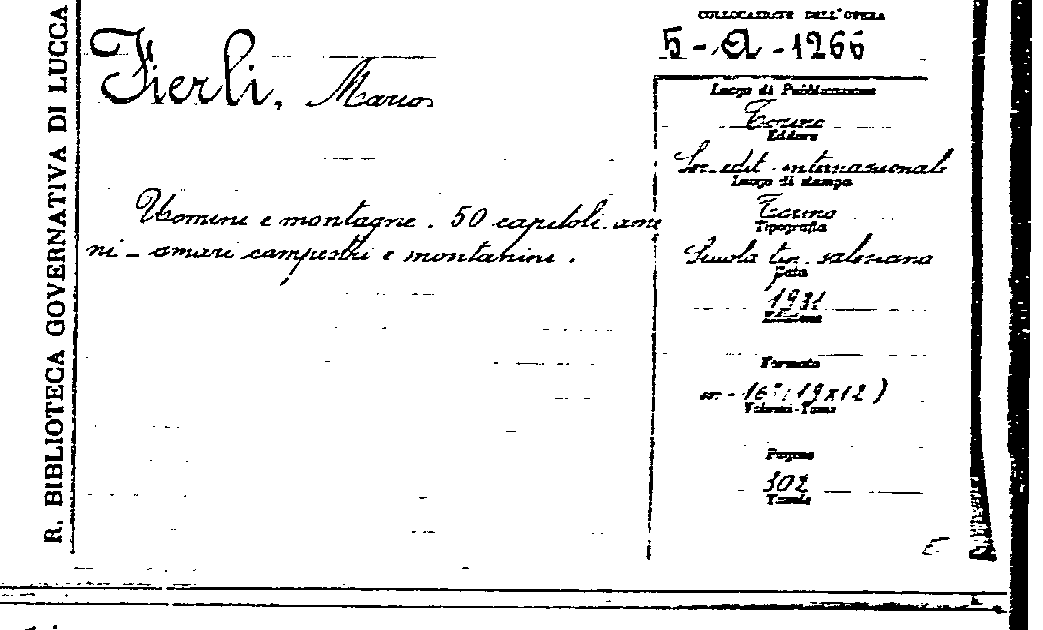 R. BIBLIOTECA GOVERNATIVA DI LUCCA
Fierli, Mario
Uomini e montagne. 50 capitoli ame
ni - amari campestri e montanini.
COLLOCAZIONE DELL'OPERA
5-A-1266
Luogo di Pubblicazione
Torino
Editore
Soc. edit. internazionale
Luogo di stampa
Torino
Tipografia
Scuola tip. salesiana
Data
1931
Edizione
Formato
in-16° (19x12)
Volumi-Tomi
Pagine
302
Tavole